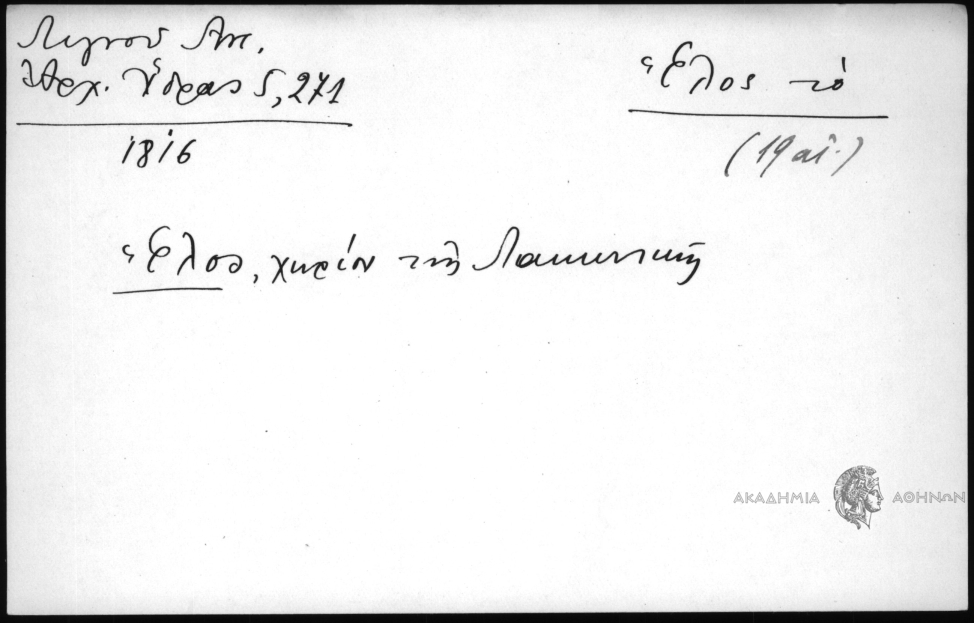 Λιγνού Αντ.
Ἀρχ. Ὕδρας 5, 271
1816
Ἕλος τό
(19 αἰ.)
Ἕλος, χωρίον τῆς Λακωνικῆς
ΑΚΑΔΗΜΙΑ ΑΘΗΝΩΝ